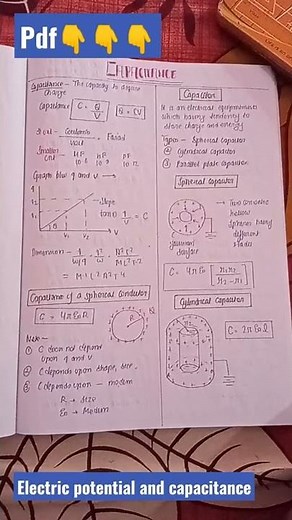 Pdf👇👇👇
CAPACITANCE
Capacitance - The capacity to store
charge
Capacitance C = Q/V Q = CV
S.I unit - Coulomb/Volt = Farad
Smaller unit
Graph b/w q and v →
q
q2
q1
θ
V1 V2
v
→ Slope
tan θ = q/V = C
Dimension -
Capacitance of a Spherical Conductor
C = 4πε0R
R
Note -
① C does not depend
upon q and V
② C depends upon shape, size,
③ C depends upon - medium
R → size
ε0 → Medium
Capacitor
It is an electrical equipment
which having tendency to
store charge and energy
Types - Spherical Capacitor
② Cylindrical Capacitor
③ Parallel plate Capacitor
Spherical Capacitor
→ Two concentric
hollow
spheres having
different
radii
Gaussian
Surface
C = 4πε0 [r1r2/r2-r1]
Cylindrical Capacitor
C = 2πε0l
Electric potential and capacitance